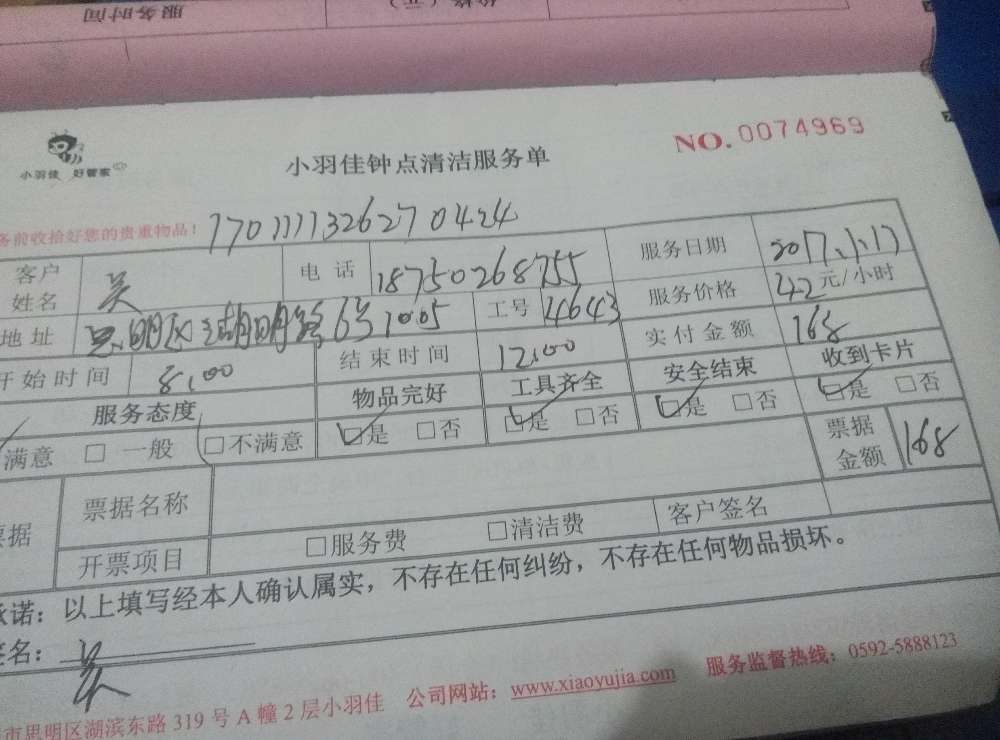 服务时间
价格（元）
小羽佳 好管家
小羽佳钟点清洁服务单
NO. 0074969
务前收拾好您的贵重物品！ 1701111132627 0424
客户姓名 吴 电话 18750268755 服务日期 2017.1.17
地址 思明区湖明路65 1005 工号 4643 服务价格 42元/小时
开始时间 8:00 结束时间 12:00 实付金额 168
服务态度 物品完好 工具齐全 安全结束 收到卡片
满意 □ 一般 □不满意 □是 □否 □是 □否 □是 □否 □是 □否
票据 票据名称 票据金额 168
开票项目 □服务费 □清洁费 客户签名
承诺：以上填写经本人确认属实，不存在任何纠纷，不存在任何物品损坏。
签名： 吴
市思明区湖滨东路 319 号 A 幢 2 层小羽佳 公司网站：www.xiaoyujia.com 服务监督热线：0592-5888123